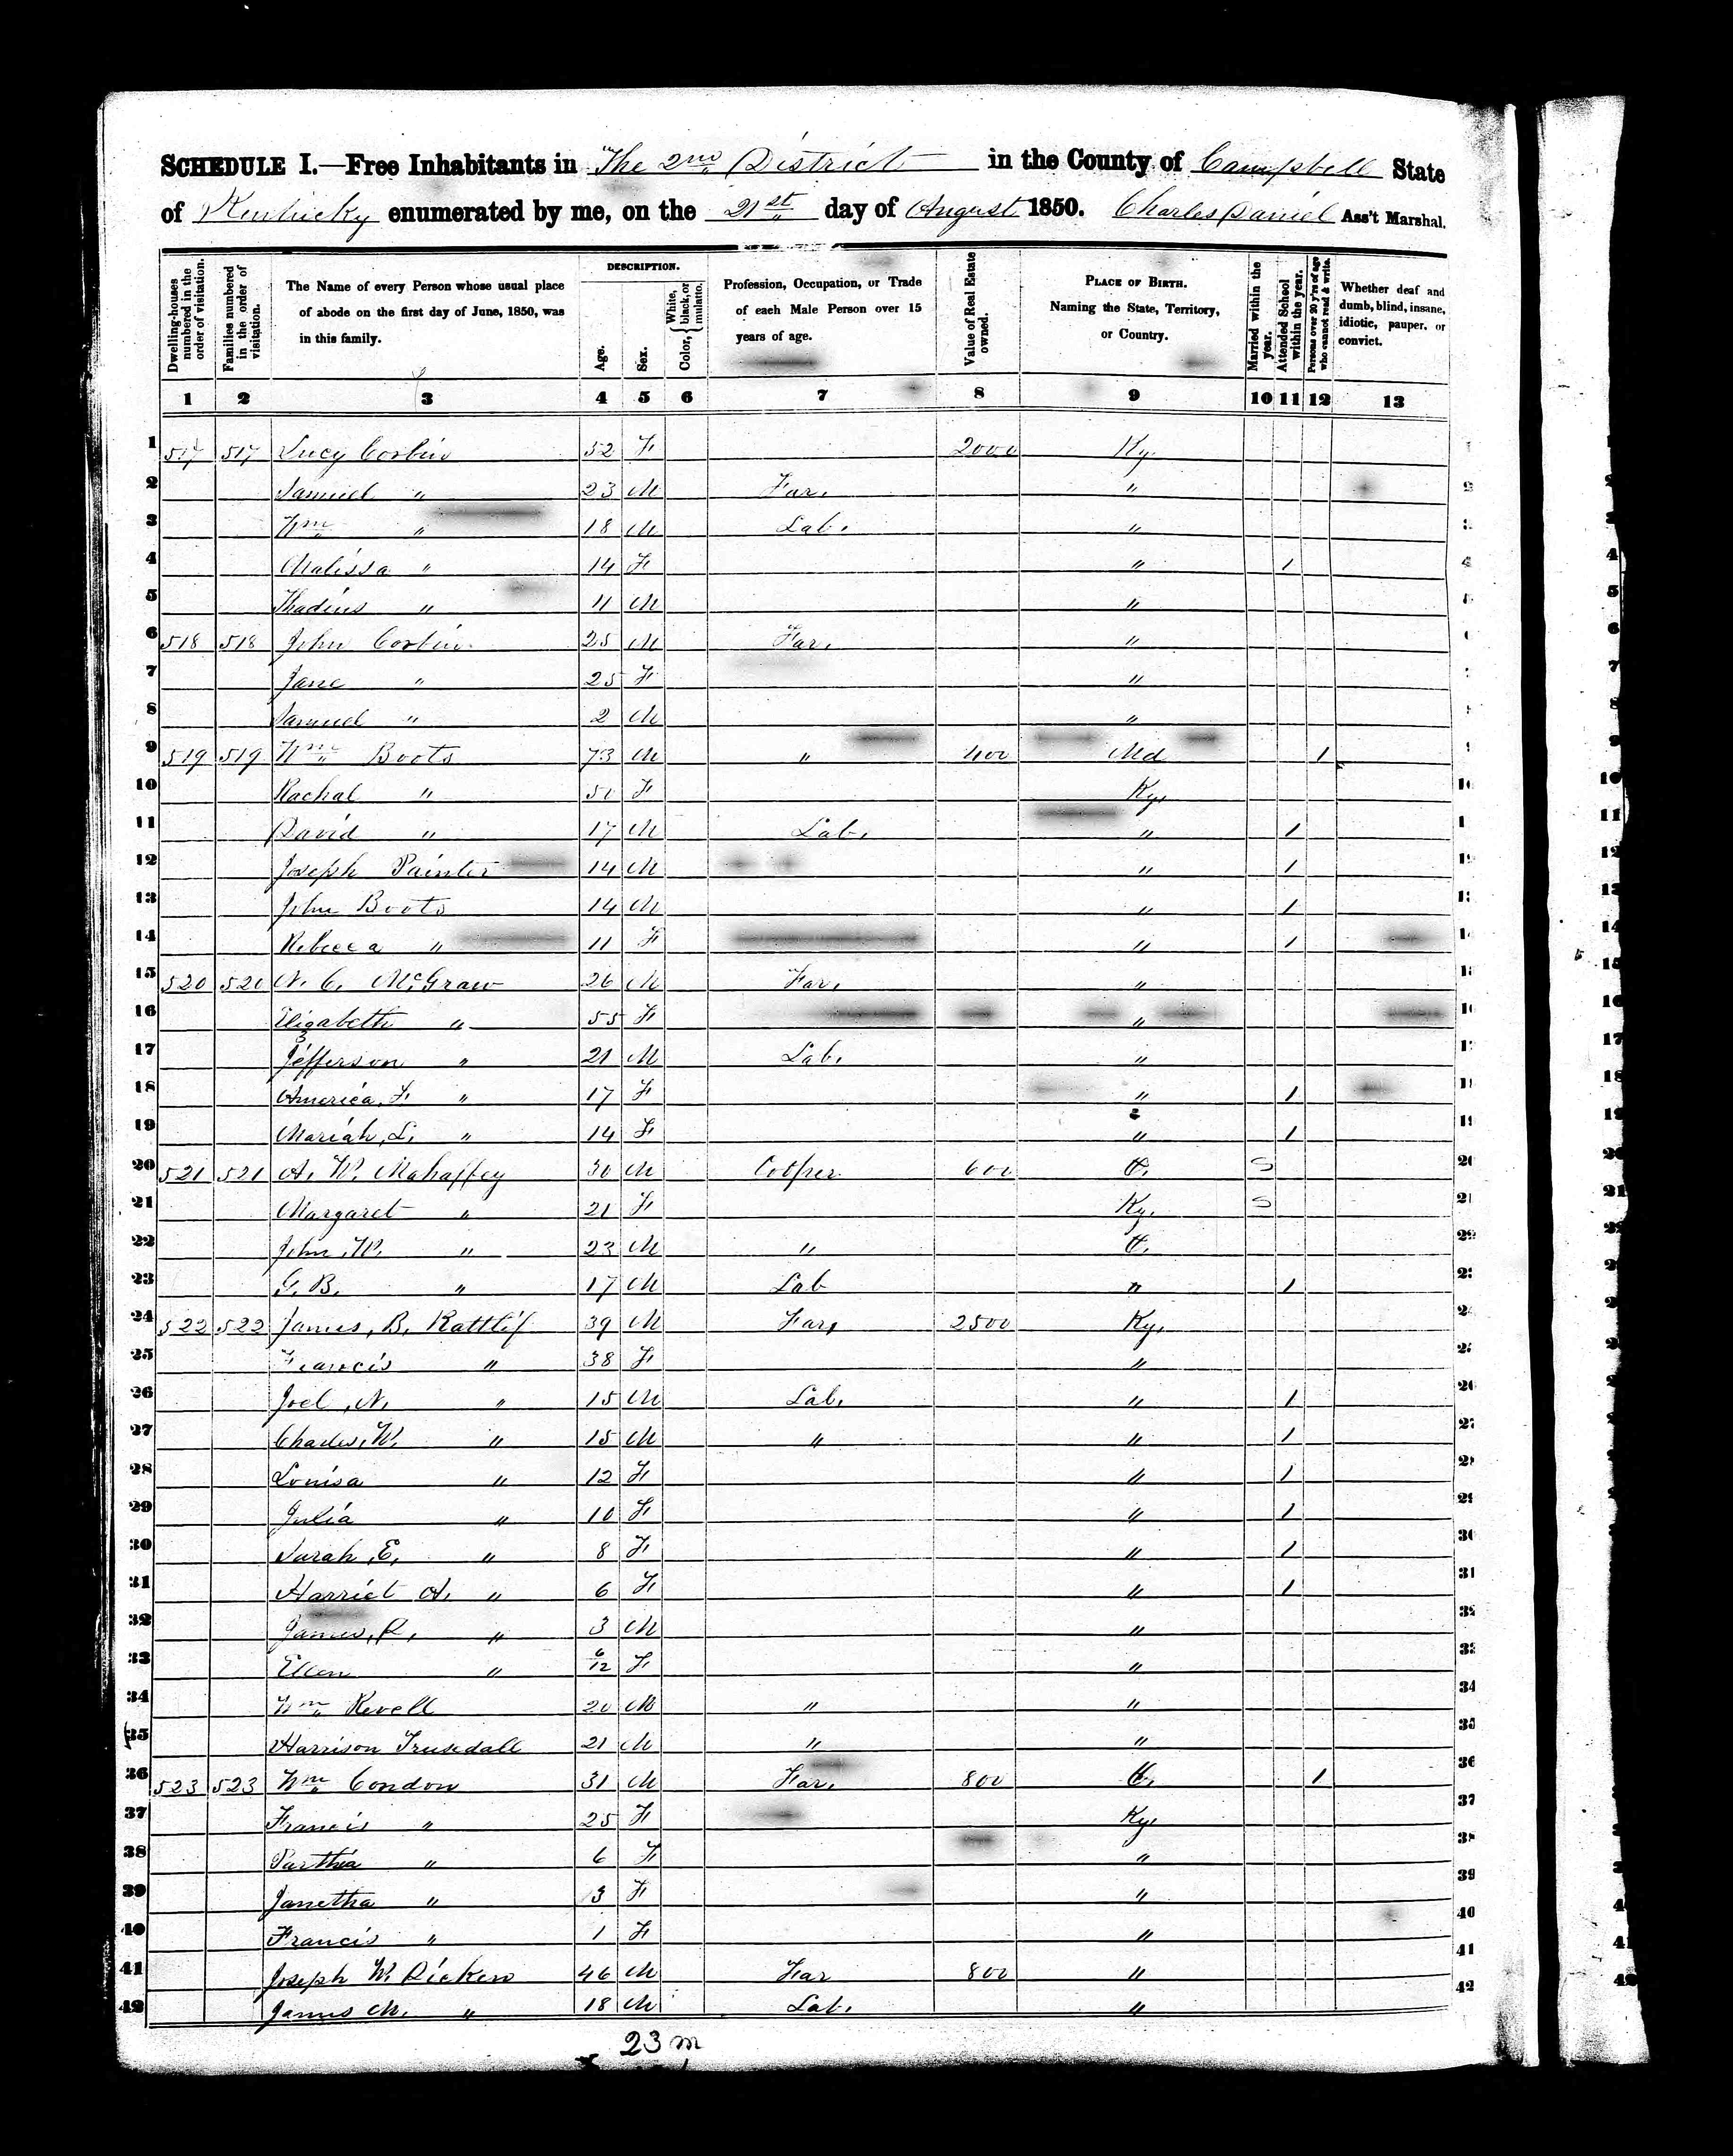 SCHEDULE I.—Free Inhabitants in The 2nd District in the County of Campbell State
of Kentucky enumerated by me, on the 21st day of August 1850. Charles Daniel Ass't Marshal.
Dwelling-houses numbered in the order of visitation.
Families numbered in the order of visitation.
The Name of every Person whose usual place of abode on the first day of June, 1850, was in this family.
DESCRIPTION.
Age.
Sex.
Color, { White, black, or mulatto.
Profession, Occupation, or Trade of each Male Person over 15 years of age.
Value of Real Estate owned.
PLACE OF BIRTH. Naming the State, Territory, or Country.
Married within the year.
Attended School within the year.
Persons over 20 y'rs of age who cannot read & write.
Whether deaf and dumb, blind, insane, idiotic, pauper, or convict.
1 2 3 4 5 6 7 8 9 10 11 12 13
1 517 517 Lucy Corbin 52 F 2000 Ky.
2 Samuel " 23 M Far. "
3 Wm " 18 M Lab. "
4 Malissa " 14 F " 1
5 Thadius " 11 M "
6 518 518 John Corbin 25 M Far. "
7 Jane " 25 F "
8 Samuel " 2 M "
9 519 519 Wm Boots 73 M " 400 Md 1
10 Rachal " 50 F Ky.
11 David " 17 M Lab. " 1
12 Joseph Painter 14 M " 1
13 John Boots 14 M " 1
14 Rebecca " 11 F " 1
15 520 520 N. C. McGraw 26 M Far. "
16 Elizabeth " 55 F "
17 Jefferson " 21 M Lab. "
18 America, F. " 17 F " 1
19 Mariah, L. " 14 F " 1
20 521 521 A. W. Mahaffey 30 M Cooper 600 O.
21 Margaret " 21 F Ky.
22 John, W. " 23 M " O.
23 G. B. " 17 M Lab " 1
24 522 522 James, B. Rattlif 39 M Far, 2500 Ky.
25 Francis " 38 F "
26 Joel, N. " 15 M Lab. " 1
27 Charles, W. " 15 M " " 1
28 Louisa " 12 F " 1
29 Julia " 10 F " 1
30 Sarah, E. " 8 F " 1
31 Harriet A. " 6 F " 1
32 James, R. " 3 M "
33 Ellen " 6/12 F "
34 Wm Revell 20 M " "
35 Harrison Trusdall 21 M " "
36 523 523 Wm Condon 31 M Far. 800 O. 1
37 Francis " 25 F Ky.
38 Parthia " 6 F "
39 Janetha " 3 F "
40 Francis " 1 F "
41 Joseph W. Dicken 46 M Far 800 "
42 James M. " 18 M Lab. "
23 m